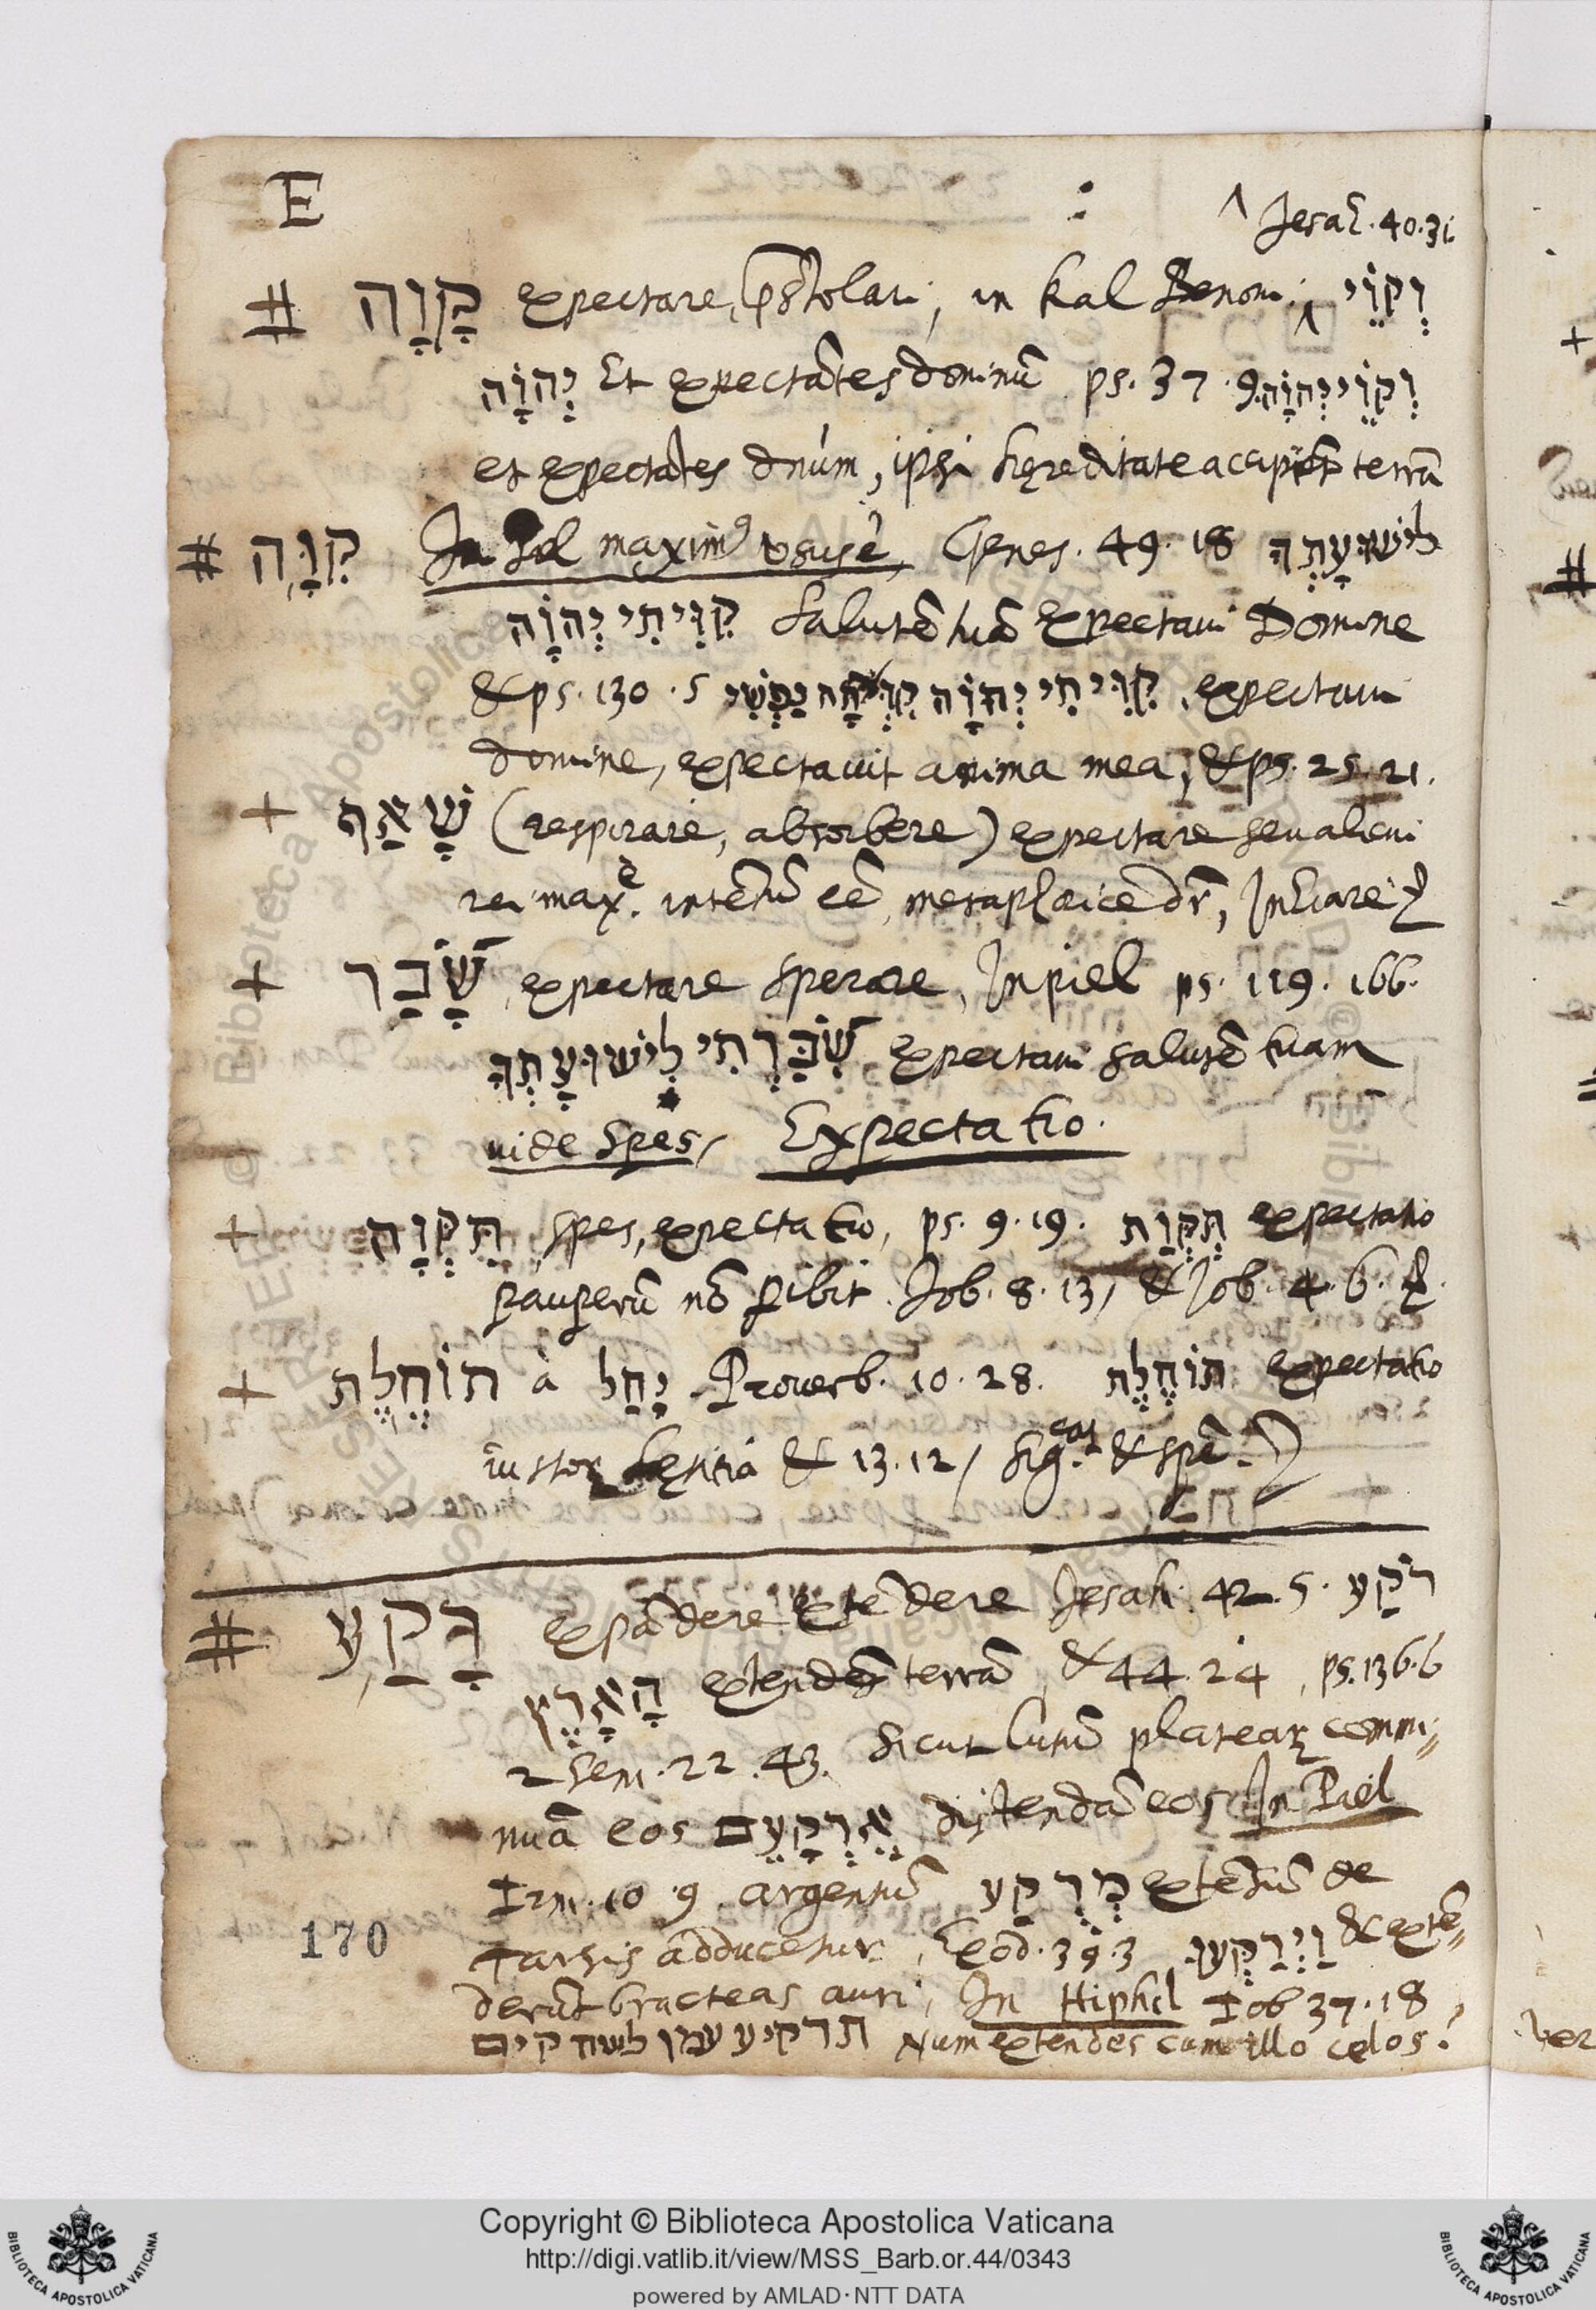 E
^ Jesaī. 40. 31.
# קָוָה expectare, p̄stolari, in Kal Benoni ^ וְקוֵֹי
יְהוָֹה Et expectātes dominū ps. 37. 9. וְקוֵֹי יְהוָֹה
et expectātes dnúm, ipsi hęreditate accipiēt terrā
# קִוָּה In Piel maximꝰ usus ē, Genes. 49. 18 לישוּעָתְךָ
קִוִּיתִי יְהוָֹה Salutē tuā expectaui Domine
& ps. 130. 5 קִוִּיתִי יְהוָֹה קִוְּתָה נַפְשִׁי, expectaui
domine, expectauit anima mea, & ps. 25. 21.
+ שָׁאַף (respirare, absorbere) expectare seu alicui
rei maxè. intētū eē, metaphoricè dr̄, Inhiare
+ שָׂבַר, expectare sperare, In piel ps. 119. 166.
שִׂבַּרְתִּי לִישׁוּעָתְךָ expectaui salutē tuam
uide Spes, Expectatio.
+ תִּקְוָה, spes, expectatio, ps. 9. 19. תִּקְוַת expectatio
pauperū nō ꝑibit. Job. 8. 13, & Job. 4. 6.
+ תוֹחֶלֶת à יָחַל Prouerb. 10. 28. תוֹחֶלֶת expectatio
iustoꝝ lętitia & 13. 12, sig.cat & spē.
# רָקַע expādere extēdere Jesah. 42. 5. רֹקַע
הָאָרֶץ extendēs terrā, & 44. 24, ps. 136. 6
2 Sem. 22. 43. Sicut lutū plateaꝝ commi⸗
nuā eos אֶרְקָעֵם distendā eos In Piel
Irm. 10. 9. argentū מְרֻקָּע extēsū de
Tarsis adducetur, Exod. 39. 3 וַיְרַקְּעוּ & extē⸗
derūt bracteas auri, In Hiphil Iob 37. 18
תרקיע עמו לשחקים Num extendes cum illo cęlos?
170
Copyright © Biblioteca Apostolica Vaticana
http://digi.vatlib.it/view/MSS_Barb.or.44/0343
powered by AMLAD·NTT DATA
BIBLIOTECA APOSTOLICA VATICANA
BIBLIOTECA APOSTOLICA VATICANA